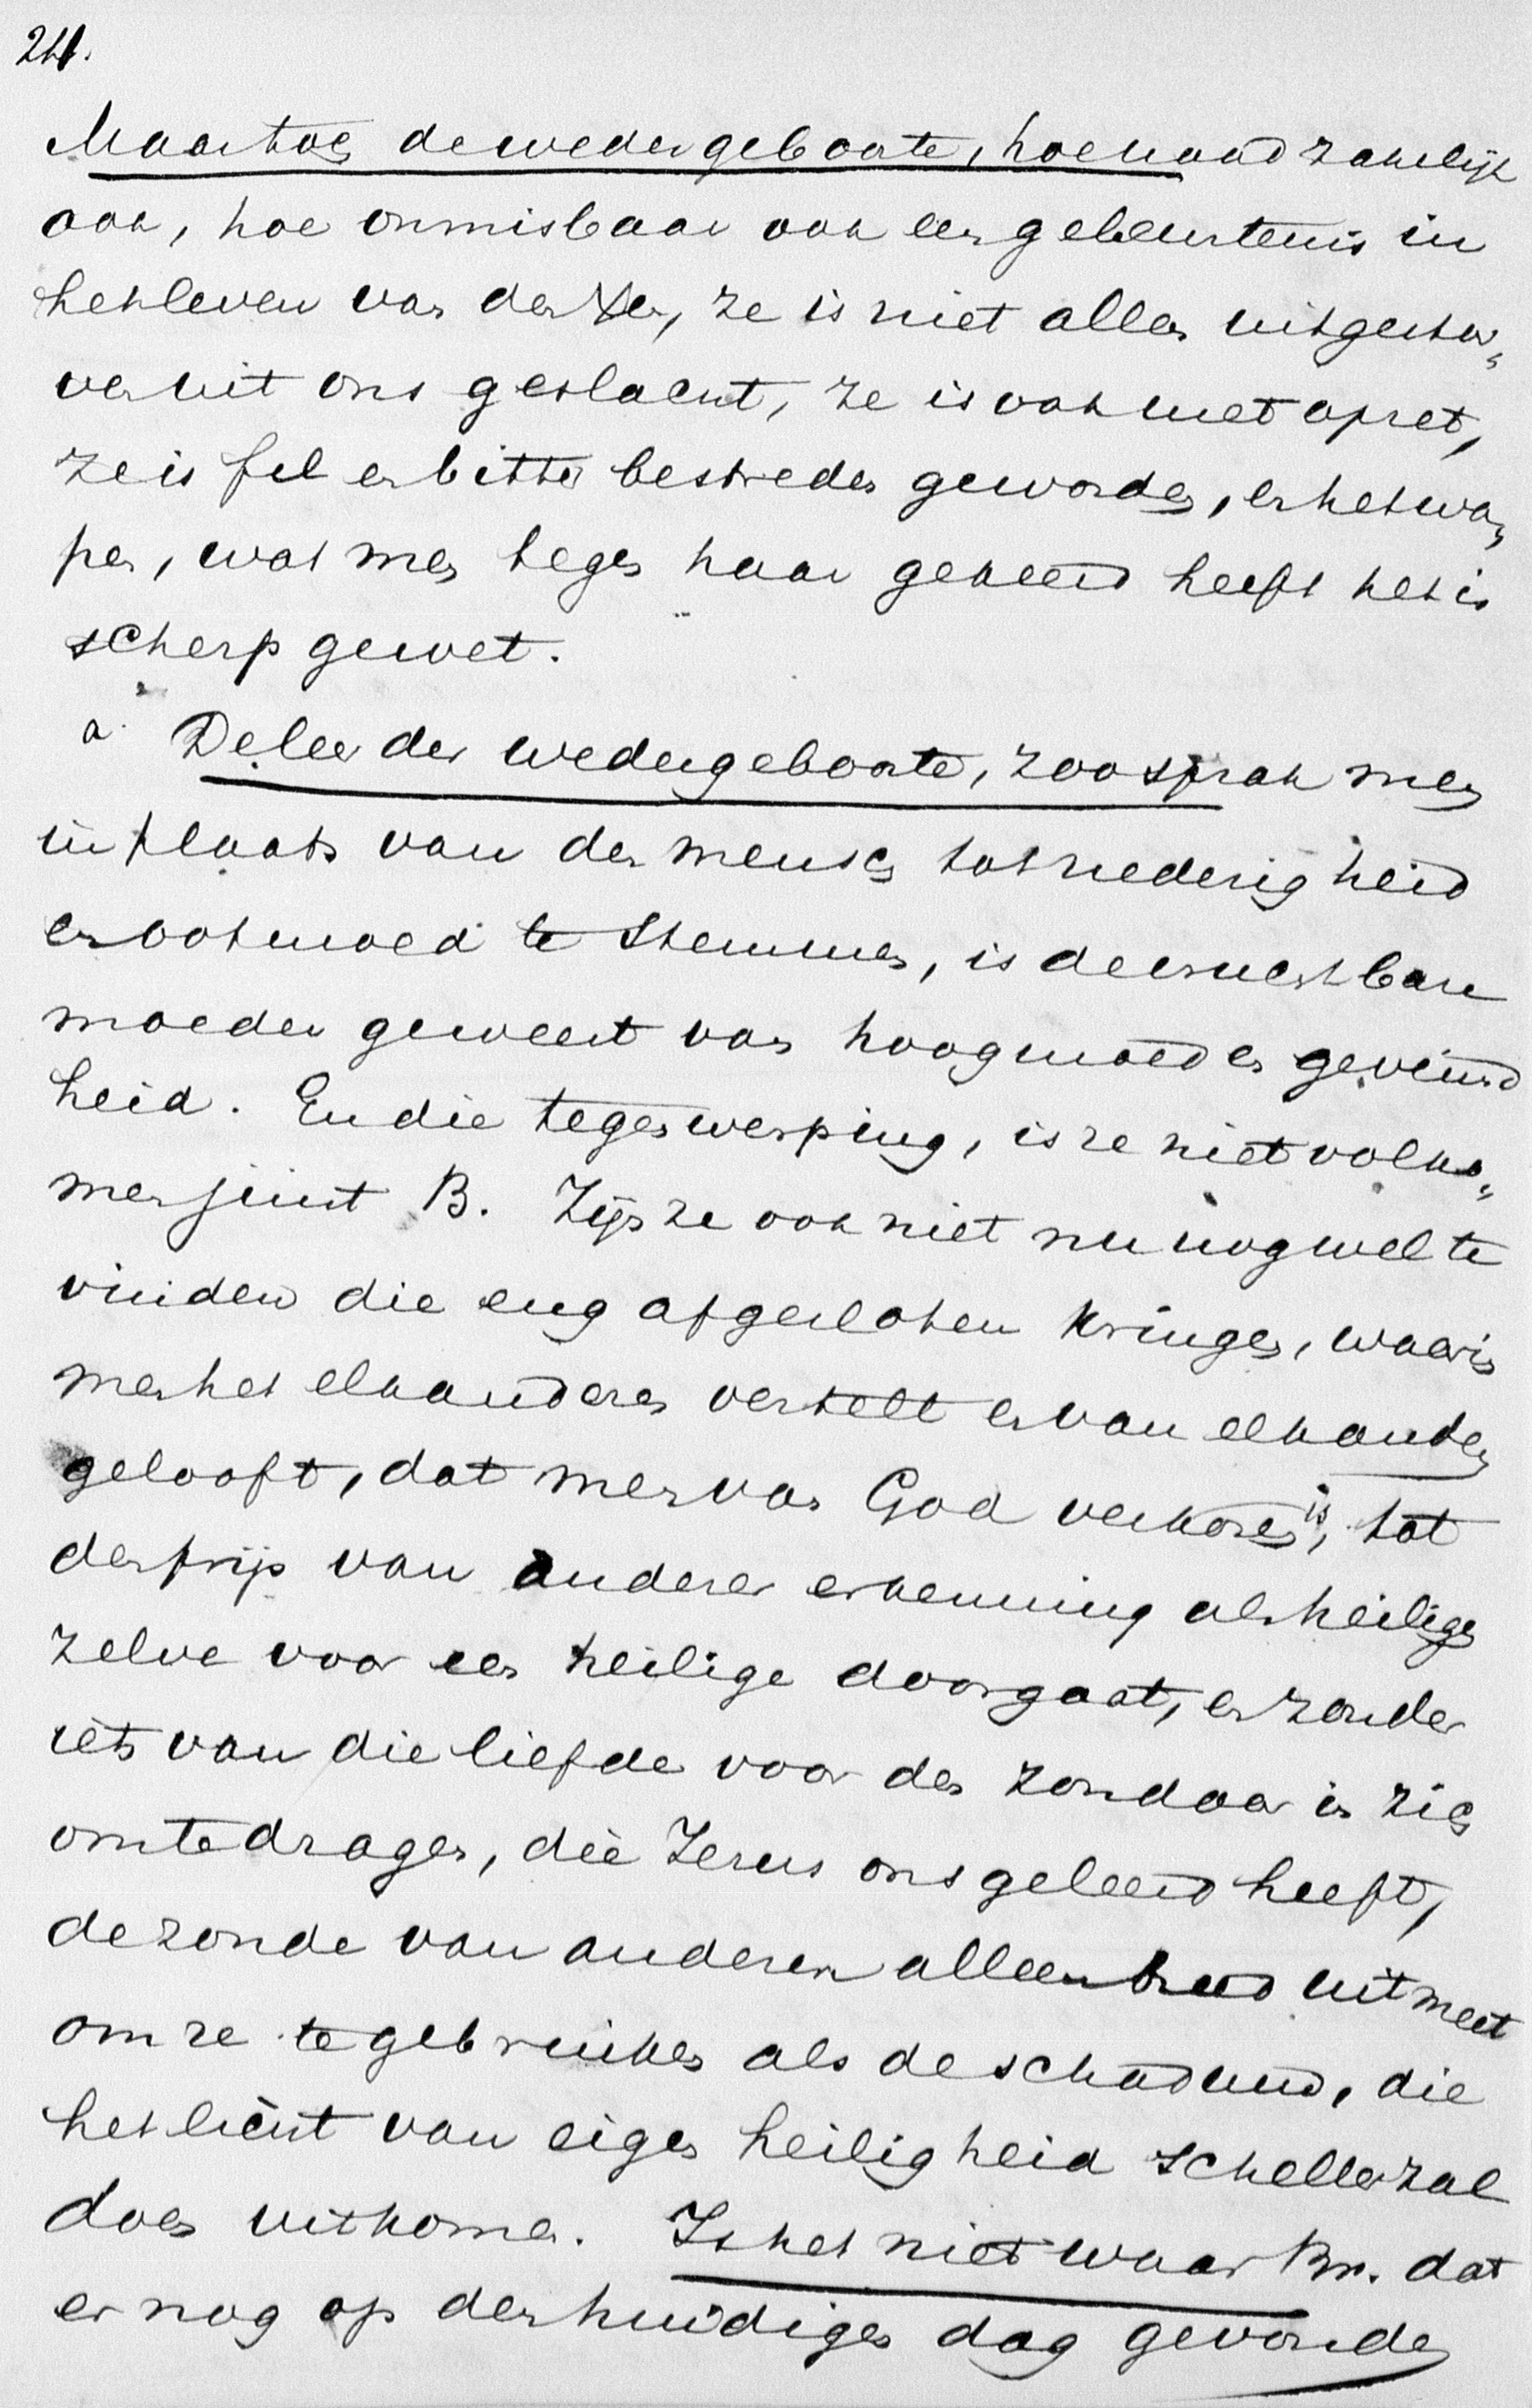 Maar toch de wedergeboorte, hoe noodzakelijk
ook, hoe onmisbaar ook een gebeurtenis in
het leven van den X en, ze is niet alleen uitgestor„
ven uit ons geslacht, ze is ook met opzet,
ze is fel en bitter bestreden geworden, en het wa„
pen, wat men tegen haar gekeerd heeft het is
scherp gewet.
a. De leer der wedergeboorte, zoo sprak men
in plaats van den mensch tot nederigheid
en ootmoed te stemmen, is de vruchtbare
moeder geweest van hoogmoed en geveinsd
heid. En die tegenwerping, is ze niet volko„
men juist B. Zijn ze ook niet nu nog wel te
vinden die eng afgesloten kringen, waarin
men het elkanderen vertelt en van elkander
gelooft, dat men van God verkoren is, tot
den prijs van anderer erkenning als heiligen
zelve voor een heilige doorgaat, en zonder
iets van die liefde voor den zondaar in zich
om te dragen, die Jezus ons geleerd heeft,
de zonde van anderen alleen breed uitmeet
om ze te gebruiken als de schaduw, die
het licht van eigen heiligheid scheller zal
doen uitkomen. Is het niet waar Br. dat
er nog op den huidigen dag gevonden